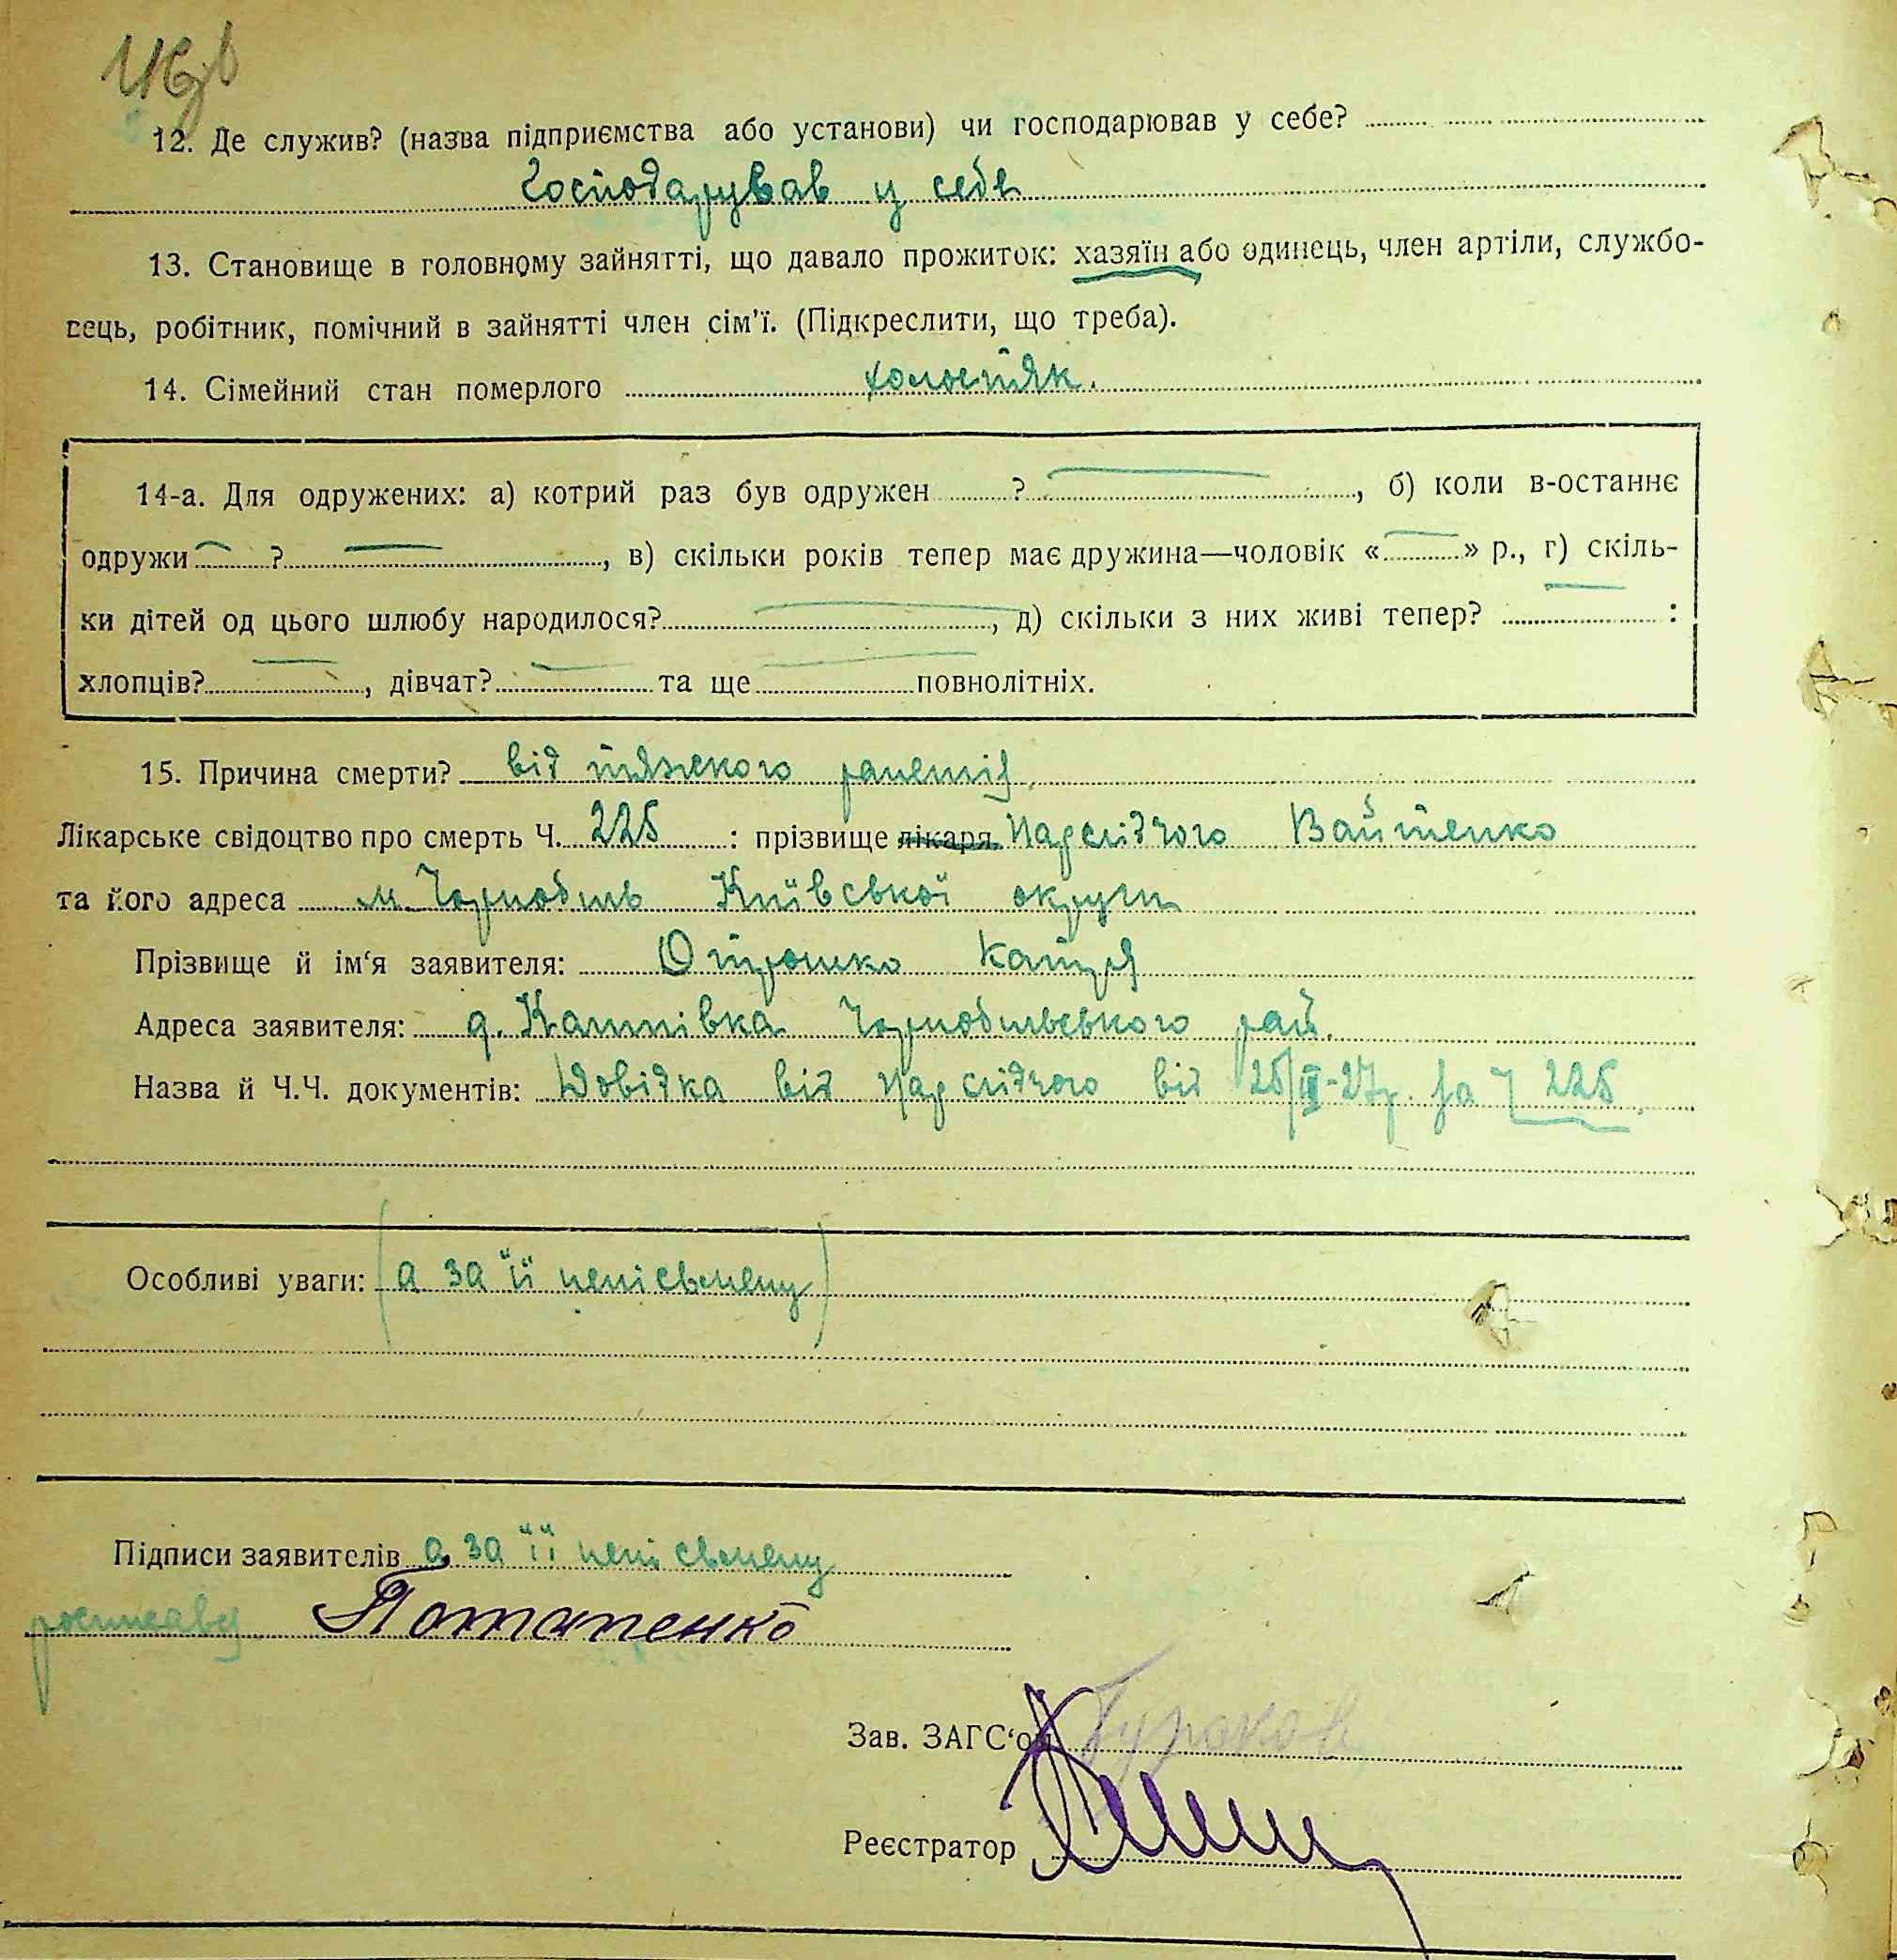 12. Де служив? (назва підприємства або установи) чи господарював у себе?
Господарував у себе
13. Становище в головному зайнятті, що давало прожиток: хазяїн або одинець, член артіли, службо-
вець, робітник, помічний в зайнятті член сім'ї. (Підкреслити, що треба).
14. Сімейний стан померлого холостяк.
14-а. Для одружених: а) котрий раз був одружен ? , б) коли в-останнє
одружи ? , в) скільки років тепер має дружина—чоловік « » р., г) скіль-
ки дітей од цього шлюбу народилося? , д) скільки з них живі тепер? :
хлопців? , дівчат? та ще повнолітніх.
15. Причина смерти? від тяжкого
Лікарське свідоцтво про смерть Ч. 225 : прізвище лікаря Нарслідчого Вайтенко
та його адреса м. Чорнобиль Київської округи
Прізвище й ім'я заявителя: Отрошко Катря
Адреса заявителя: Чорнобильського рай.
Назва й Ч.Ч. документів: Довідка від Нарслідчого від 25/III-27р. за Ч 225
Особливі уваги: (а за її неписьмену)
Підписи заявителів а за її неписьмену
росписавсь Потапенко
Зав. ЗАГС'ом
Реєстратор